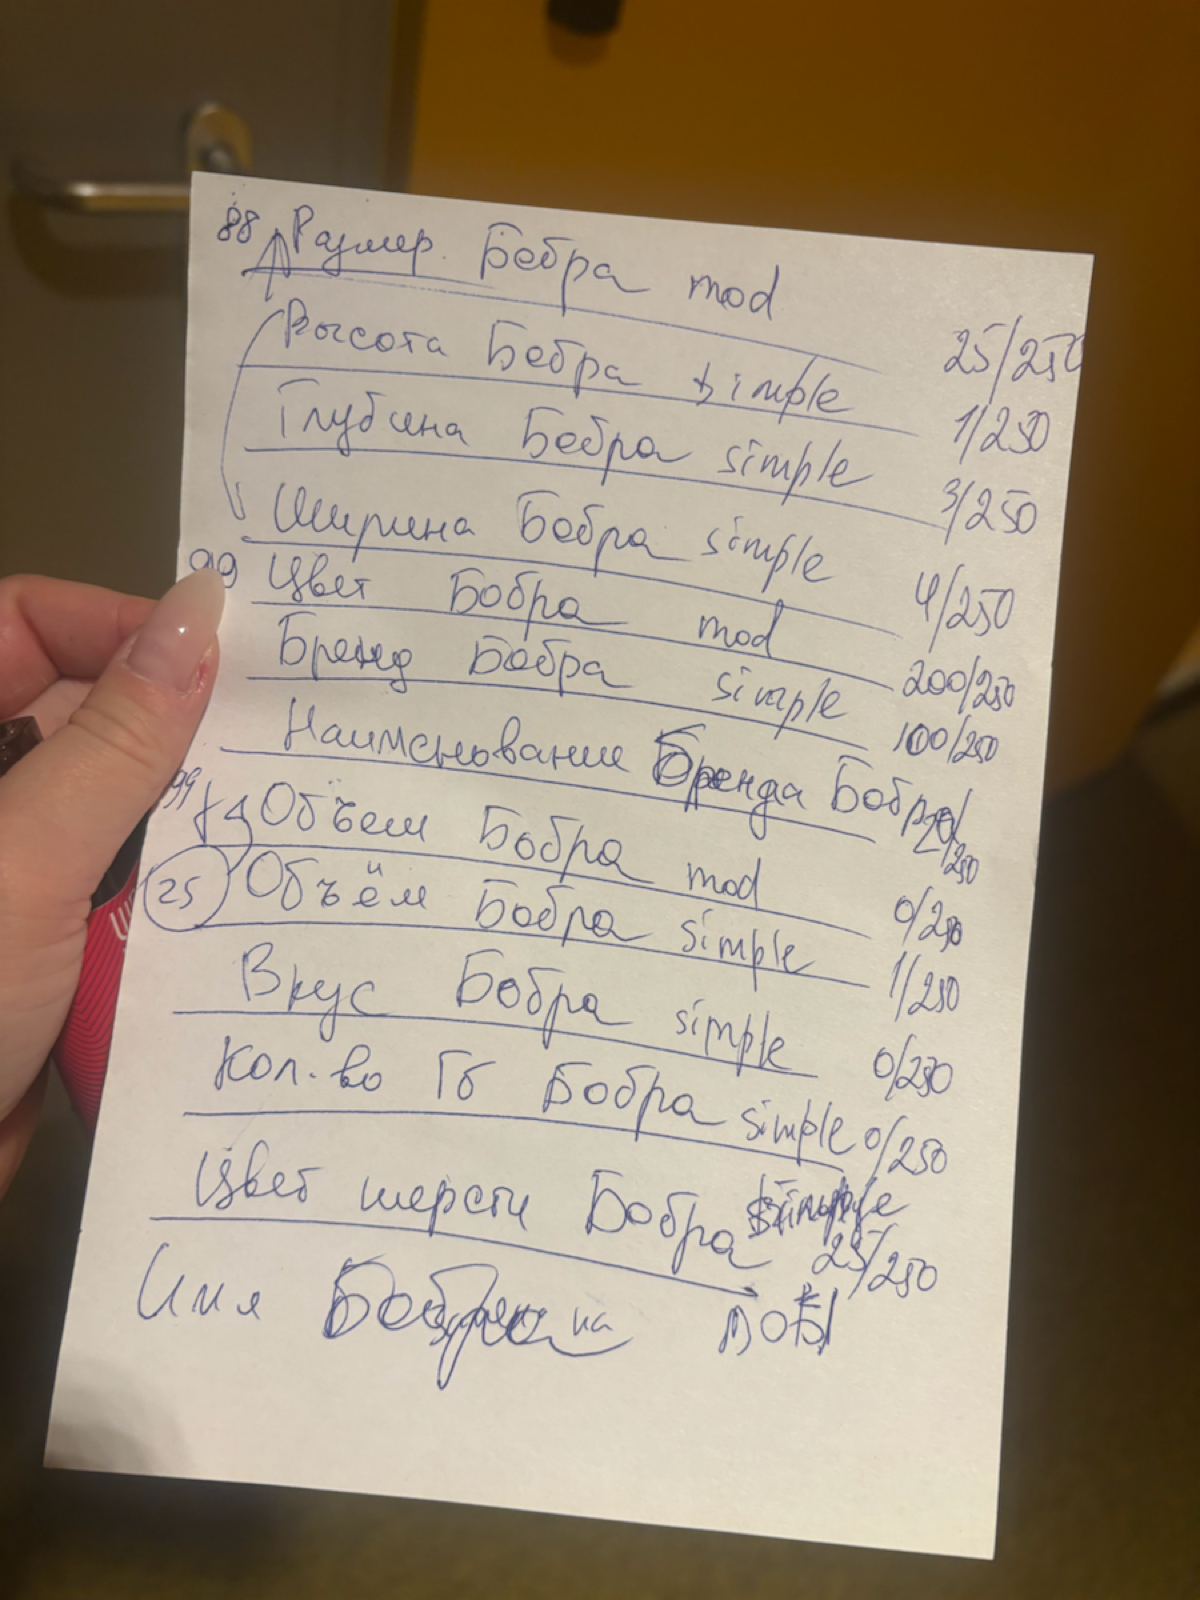 88 Размер Бобра mod 25/250
Высота Бобра simple 1/250
Глубина Бобра simple 3/250
Ширина Бобра simple 4/250
99 Цвет Бобра mod 200/250
Бренд Бобра simple 100/250
Наименование Бренда Бобра /250
99 Объем Бобра mod 0/250
25 Объём Бобра simple 1/250
Вкус Бобра simple 0/250
Кол-во Гб Бобра simple 0/250
Цвет шерсти Бобра simple 25/250
Имя